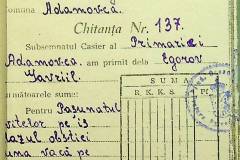 omuna Adamovca.
Chitanța Nr. 137.
Subsemnatul Casier al Primariei
Adamovca. am primit dela Egorov
Gavriil
SUMA
R. K. K. S. P/
următoarele sume:
Pentru Pasunatul
vitelor pe is
lazul obstiei
una vacă pe